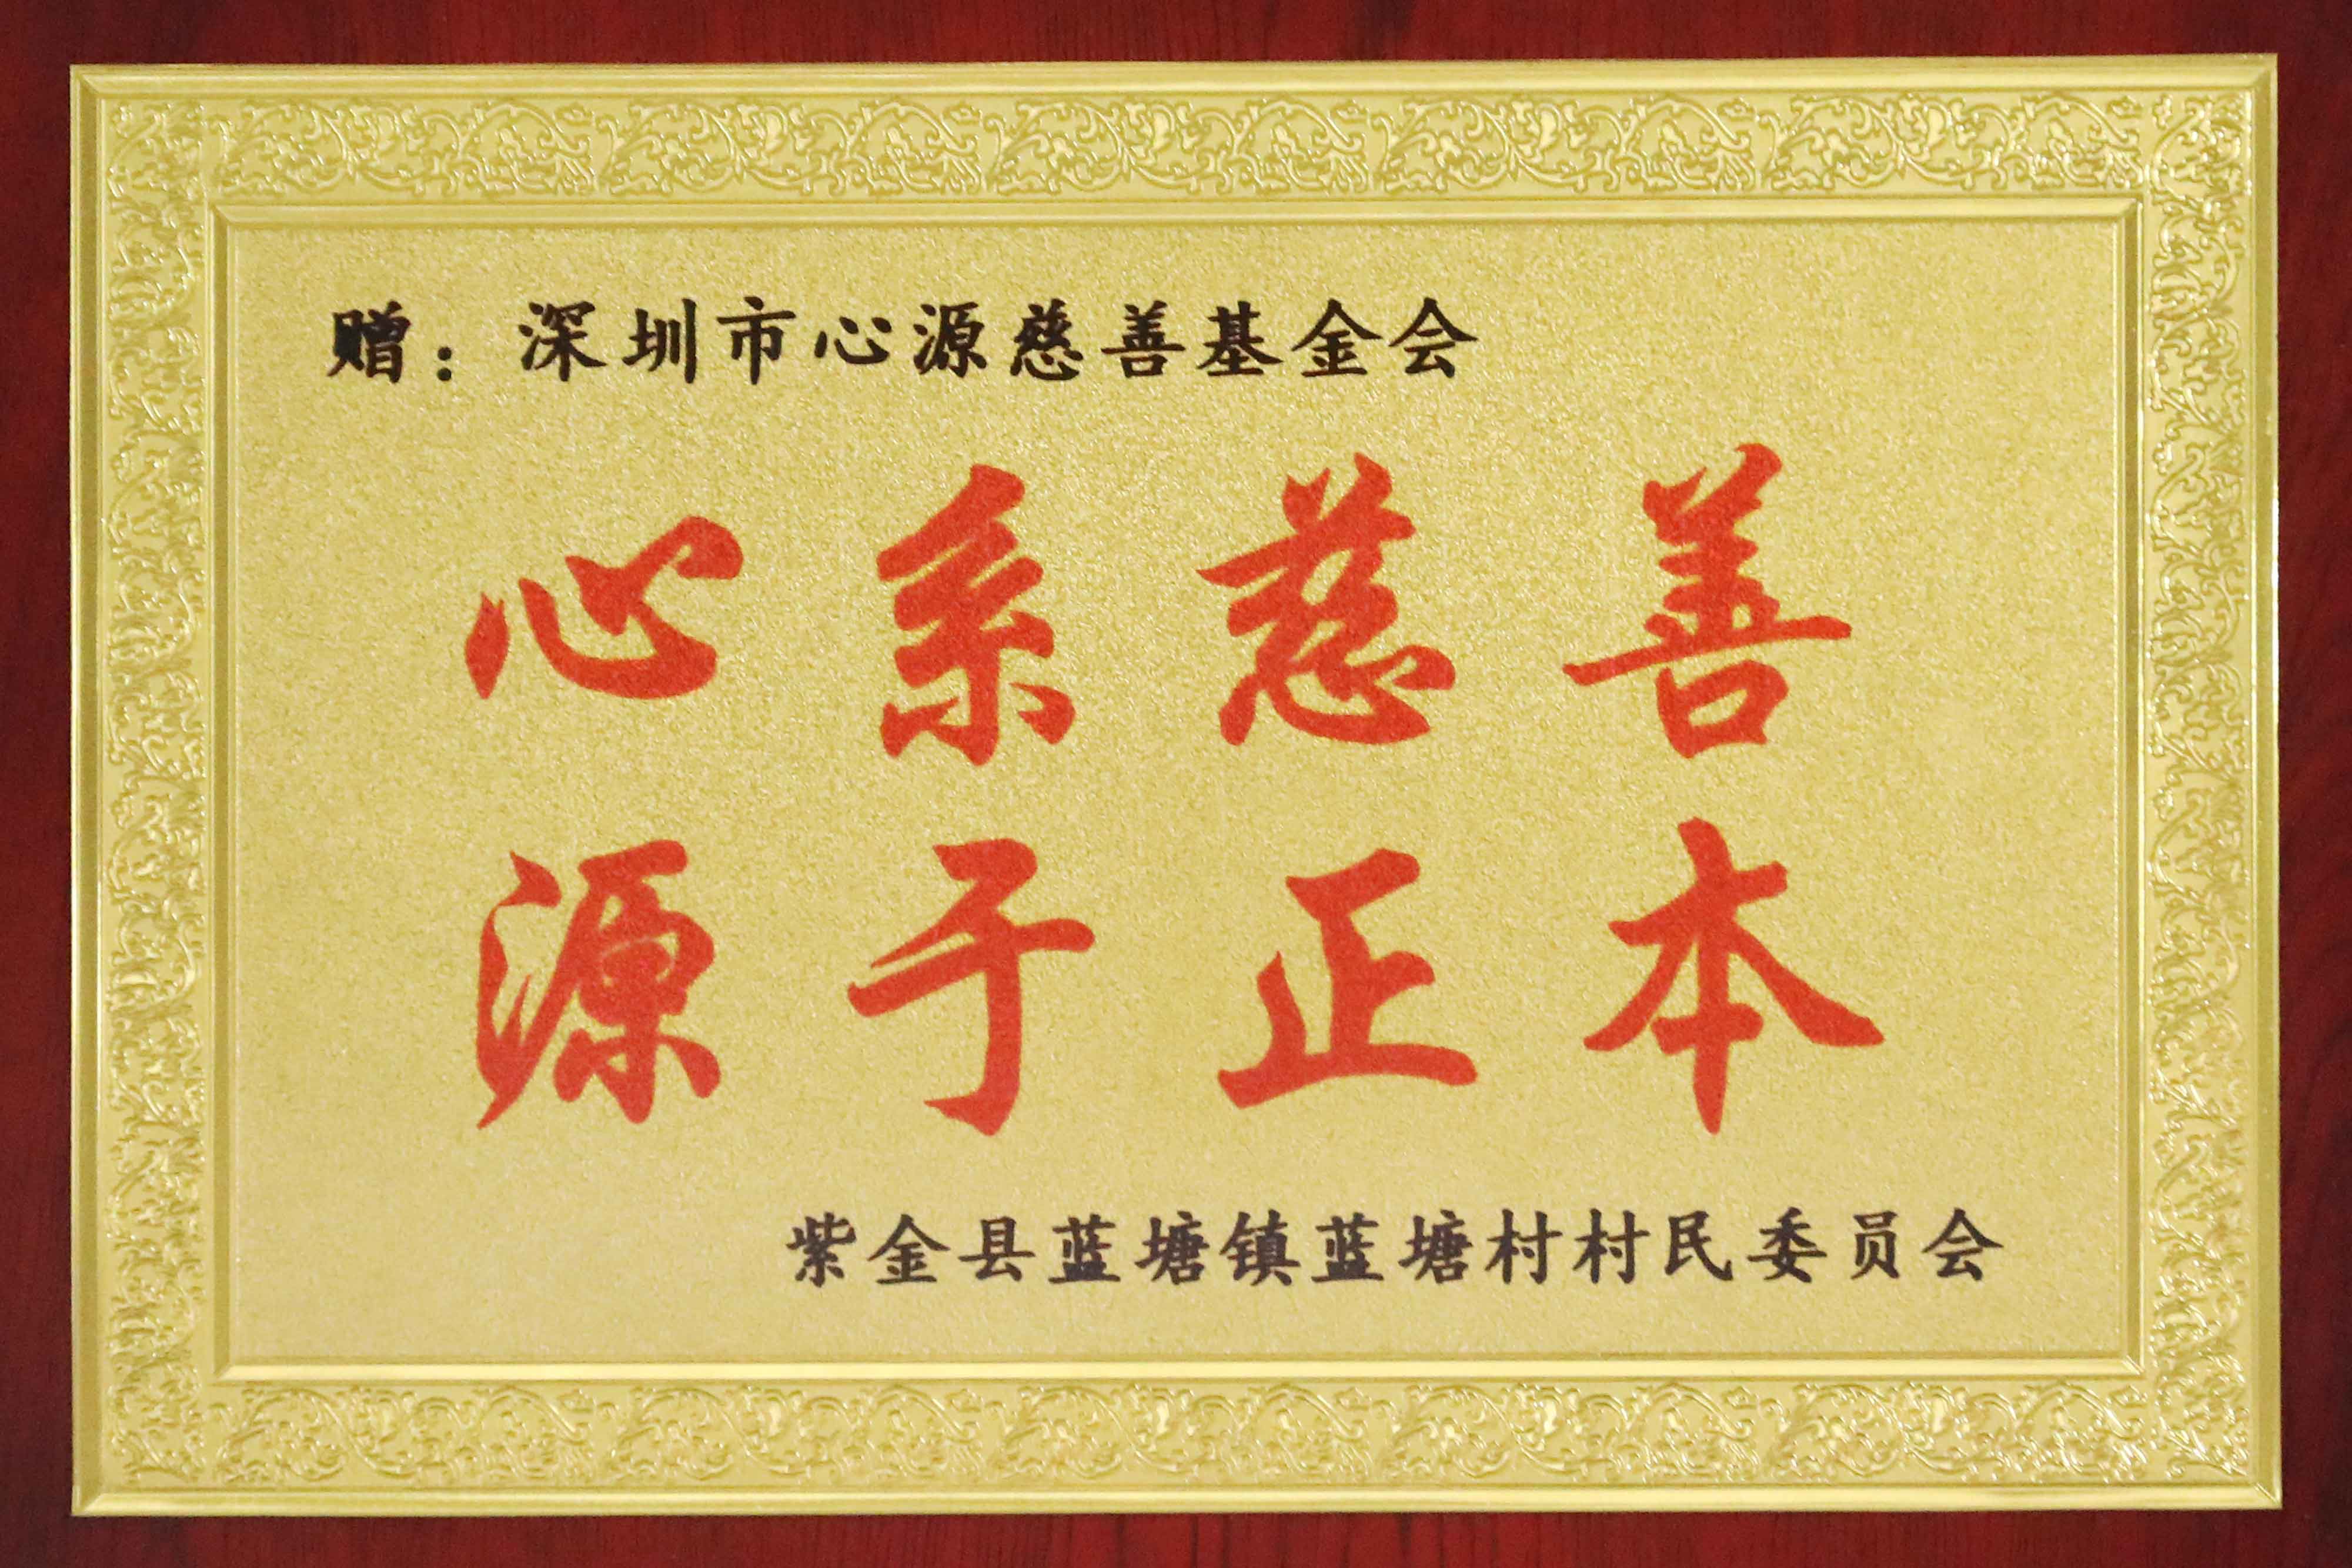 赠：深圳市心源慈善基金会
心系慈善
源于正本
紫金县蓝塘镇蓝塘村村民委员会